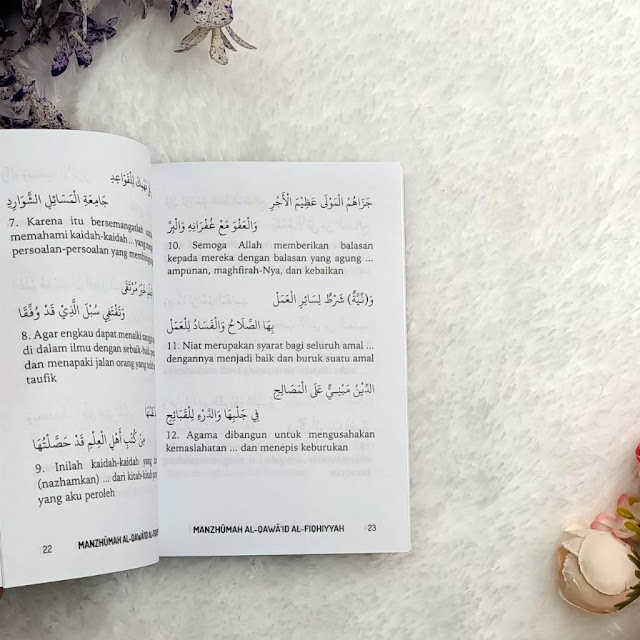 فِي فَهْمِكَ لِلْقَوَاعِدِ
جَامِعَةِ الْمَسَائِلِ الشَّوَارِدِ
7. Karena itu bersemangatlah untuk
memahami kaidah-kaidah ... yang
persoalan-persoalan yang
خَيْرَ مُرْتَقَى
وَتَقْتَفِي سُبْلَ الَّذِي قَدْ وُفِّقَا
8. Agar engkau dapat menaiki
di dalam ilmu dengan sebaik-baik
dan menapaki jalan orang yang
taufik
مِنْ كُتْبِ أَهْلِ الْعِلْمِ قَدْ حَصَّلْتُهَا
9. Inilah kaidah-kaidah yang
(nazhamkan) ... dari kitab-kitab
yang aku peroleh
22 MANZHÛMAH AL-QAWÂ'ID AL-
جَزَاهُمُ الْمَوْلَى عَظِيْمَ الْأَجْرِ
وَالْعَفْوَ مَعْ غُفْرَانِهِ وَالْبِرِّ
10. Semoga Allah memberikan balasan
kepada mereka dengan balasan yang agung ...
ampunan, maghfirah-Nya, dan kebaikan
وَ(نِيَّةٌ) شَرْطٌ لِسَائِرِ الْعَمَلْ
بِهَا الصَّلَاحُ وَالْفَسَادُ لِلْعَمَلْ
11. Niat merupakan syarat bagi seluruh amal ...
dengannya menjadi baik dan buruk suatu amal
الدِّيْنُ مَبْنِيٌّ عَلَى الْمَصَالِحِ
فِي جَلْبِهَا وَالدَّرْءِ لِلْقَبَائِحِ
12. Agama dibangun untuk mengusahakan
kemaslahatan ... dan menepis keburukan
MANZHÛMAH AL-QAWÂ'ID AL-FIQHIYYAH 23